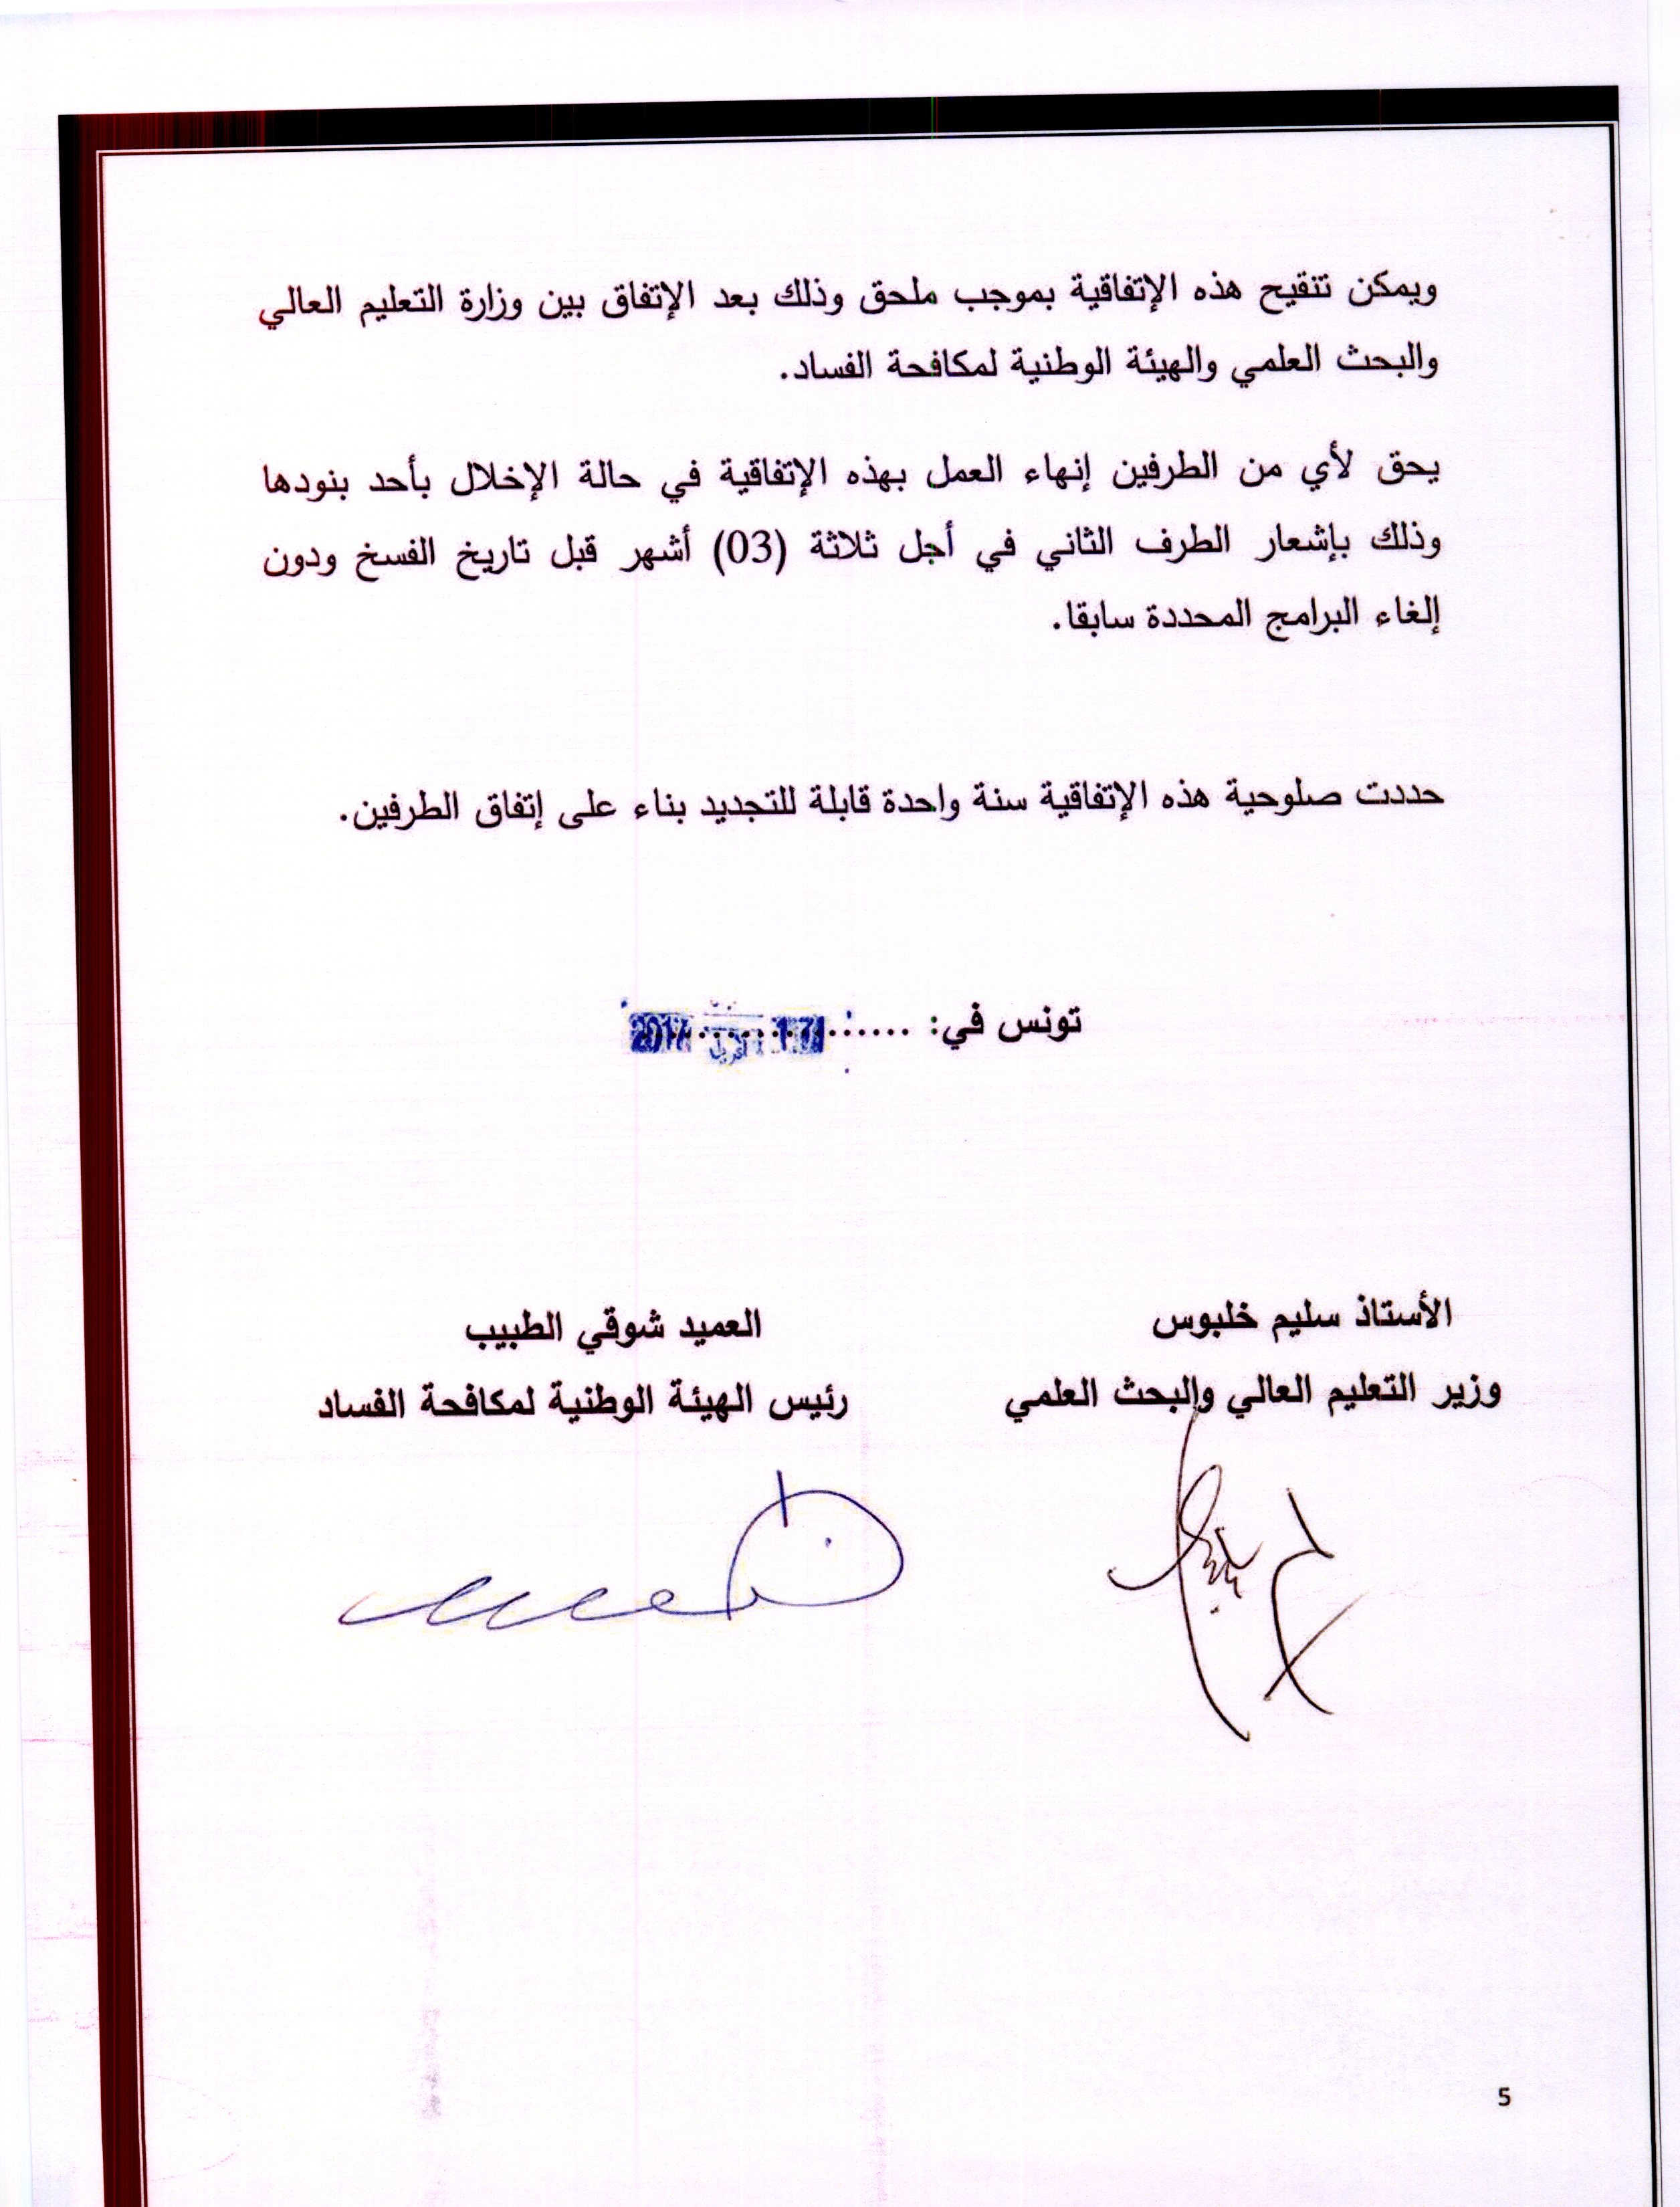 ويمكن تنقيح هذه الإتفاقية بموجب ملحق وذلك بعد الإتفاق بين وزارة التعليم العالي
والبحث العلمي والهيئة الوطنية لمكافحة الفساد.
يحق لأي من الطرفين إنهاء العمل بهذه الإتفاقية في حالة الإخلال بأحد بنودها
وذلك بإشعار الطرف الثاني في أجل ثلاثة (03) أشهر قبل تاريخ الفسخ ودون
إلغاء البرامج المحددة سابقا.
حددت صلوحية هذه الإتفاقية سنة واحدة قابلة للتجديد بناء على إتفاق الطرفين.
تونس في: ...... 17 أفريل 2017
الأستاذ سليم خلبوس
وزير التعليم العالي والبحث العلمي
العميد شوقي الطبيب
رئيس الهيئة الوطنية لمكافحة الفساد
5